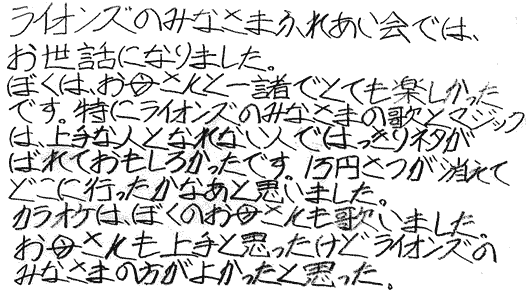 ライオンズのみなさまふれあい会では、
お世話になりました。
ぼくは、お母さんと一諸でとても楽しかった
です。特にライオンズのみなさまの歌とマジック
は、上手な人となれない人ではっきりネタが
ばれておもしろかったです。1万円さつが消えて
どこに行ったかなあと思いました。
カラオケは、ぼくのお母さんも歌いました。
お母さんも上手と思ったけどライオンズの
みなさまの方がよかったと思った。